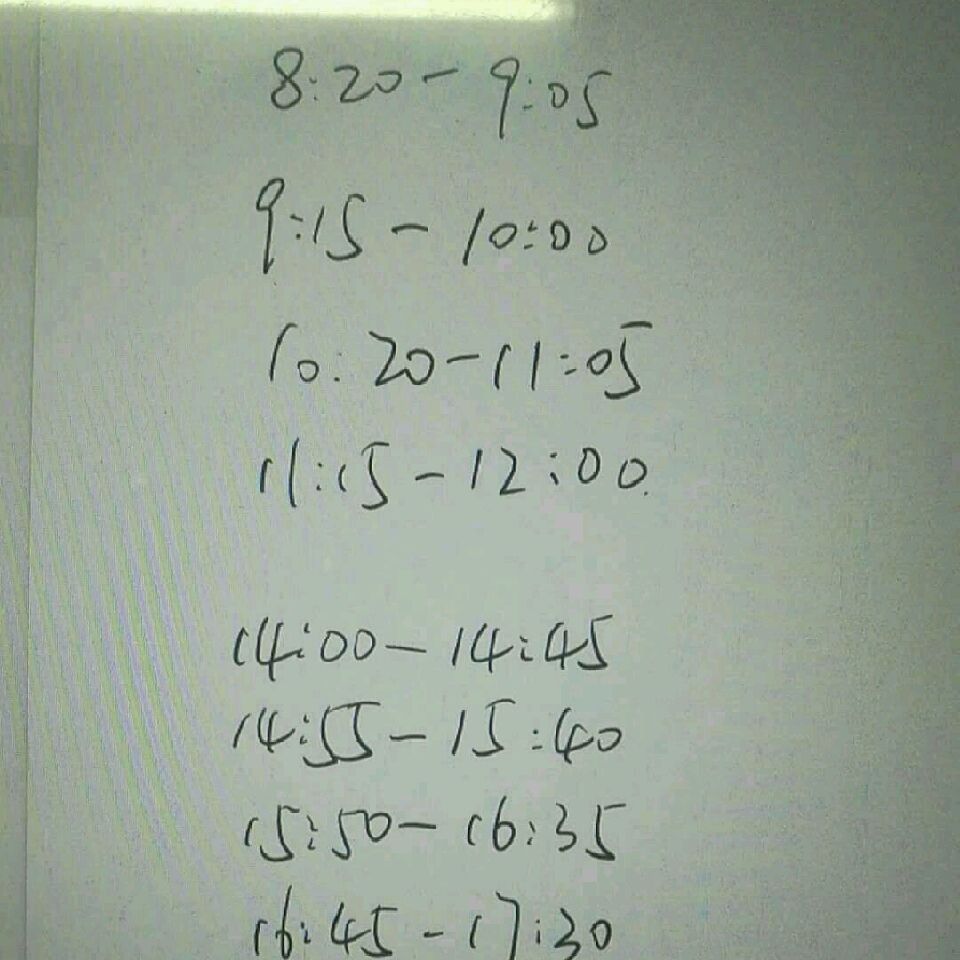 8:20-9:05
9:15-10:00
10:20-11:05
11:15-12:00
14:00-14:45
14:55-15:40
15:50-16:35
16:45-17:30